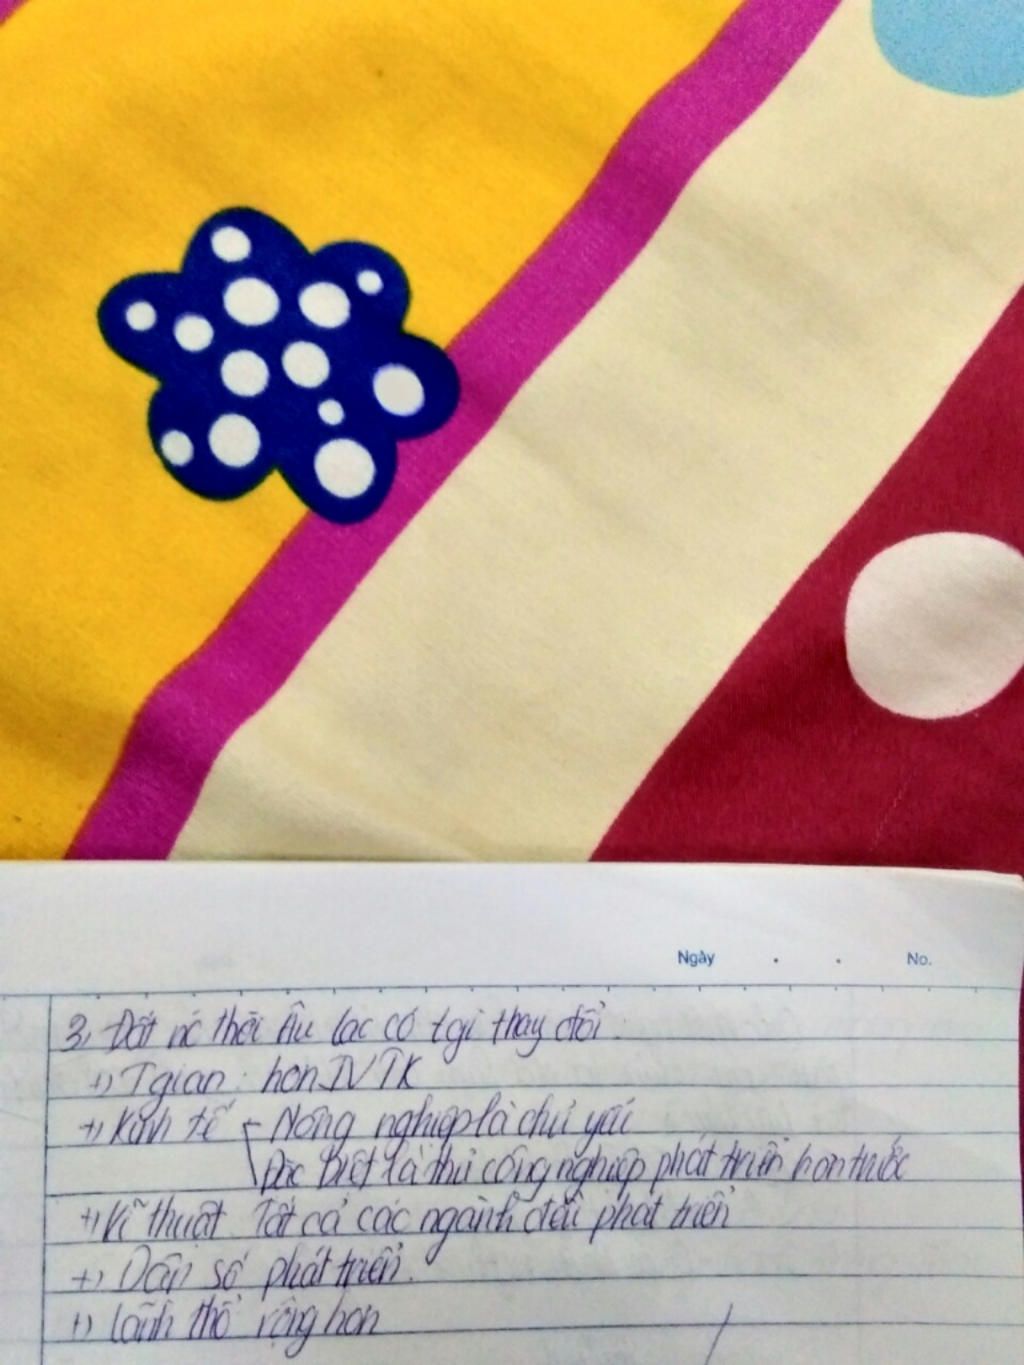 Ngày . . No.
3, Đất nc thời Âu lạc có t gì thay đổi.
+) T gian: hơn IV TK
+) Kinh tế - Nông nghiệp là chủ yếu
Đặc biệt là thủ công nghiệp phát triển hơn trước
+) Kĩ thuật Tất cả các ngành đều phát triển
+) Dân số phát triển.
+) Lãnh thổ rộng hơn